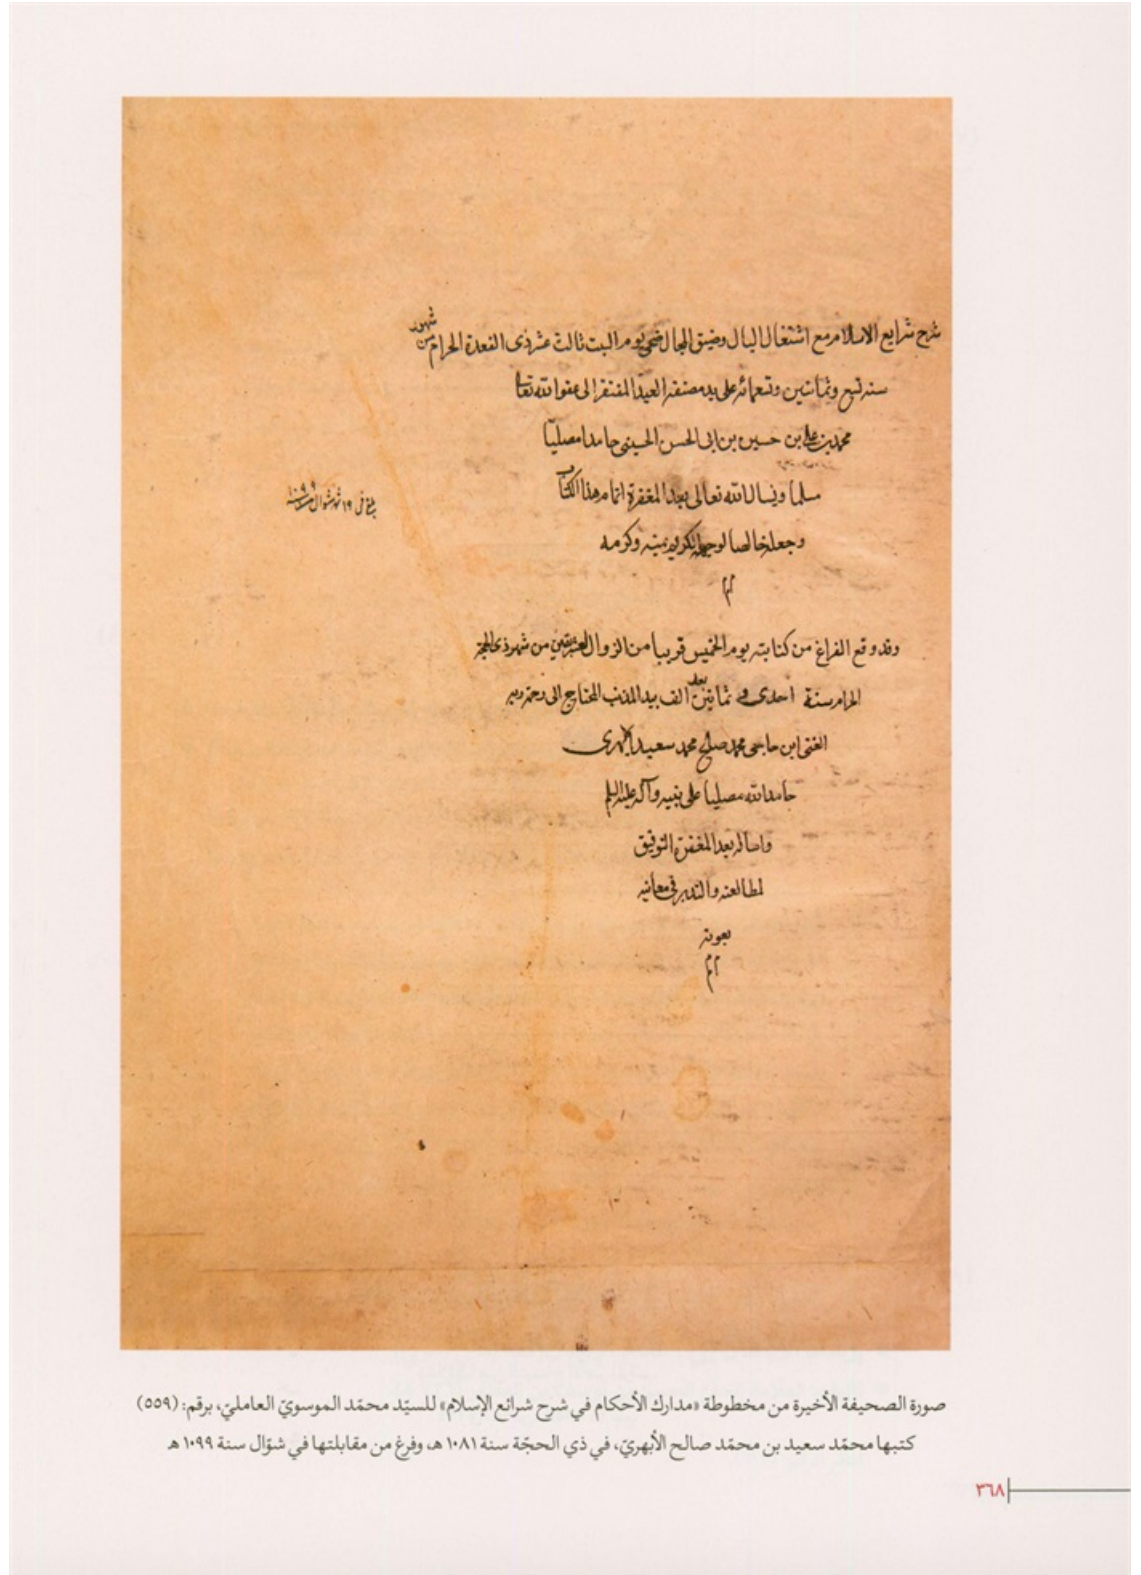 شرح شرايع الاسلام مع اشتغال البال وضيق المجال ضحى يوم السبت ثالث عشر ذى القعدة الحرام من شهور
سنه تسع وثمانين وتسعمائه على يد مصنفه العبد المفتقر الى عفو الله تعالى
محمد بن على بن حسين بن ابى الحسن الحسينى حامدا مصليّا
مسلما ونسال الله تعالى بعد المغفرة اتمام هذا الكتاب
وجعله خالصا لوجهه الكريم بمنه وكرمه
بلغ فى ١٩ شهر شوال سنه ١٠٩٩
وقد وقع الفراغ من كتابته يوم الخميس قريبا من الزوال من شهر ذى الحجة
الحرام سنة احدى و ثمانين بعد الف بيد المذنب المحتاج الى رحمة ربه
الغنى ابن حاجى محمد صالح محمد سعيد الابهرى
حامدا لله مصليا على نبيه وآله عليه السلم
واساله بعد المغفرة التوفيق
لمطالعته والتدبر فى معانيه
بعونه
صورة الصحيفة الأخيرة من مخطوطة «مدارك الأحكام في شرح شرائع الإسلام» للسيّد محمّد الموسويّ العامليّ، برقم: (٥٥٩)
كتبها محمّد سعيد بن محمّد صالح الأبهريّ، في ذي الحجّة سنة ١٠٨١ هـ، وفرغ من مقابلتها في شوّال سنة ١٠٩٩ هـ
٣٦٨